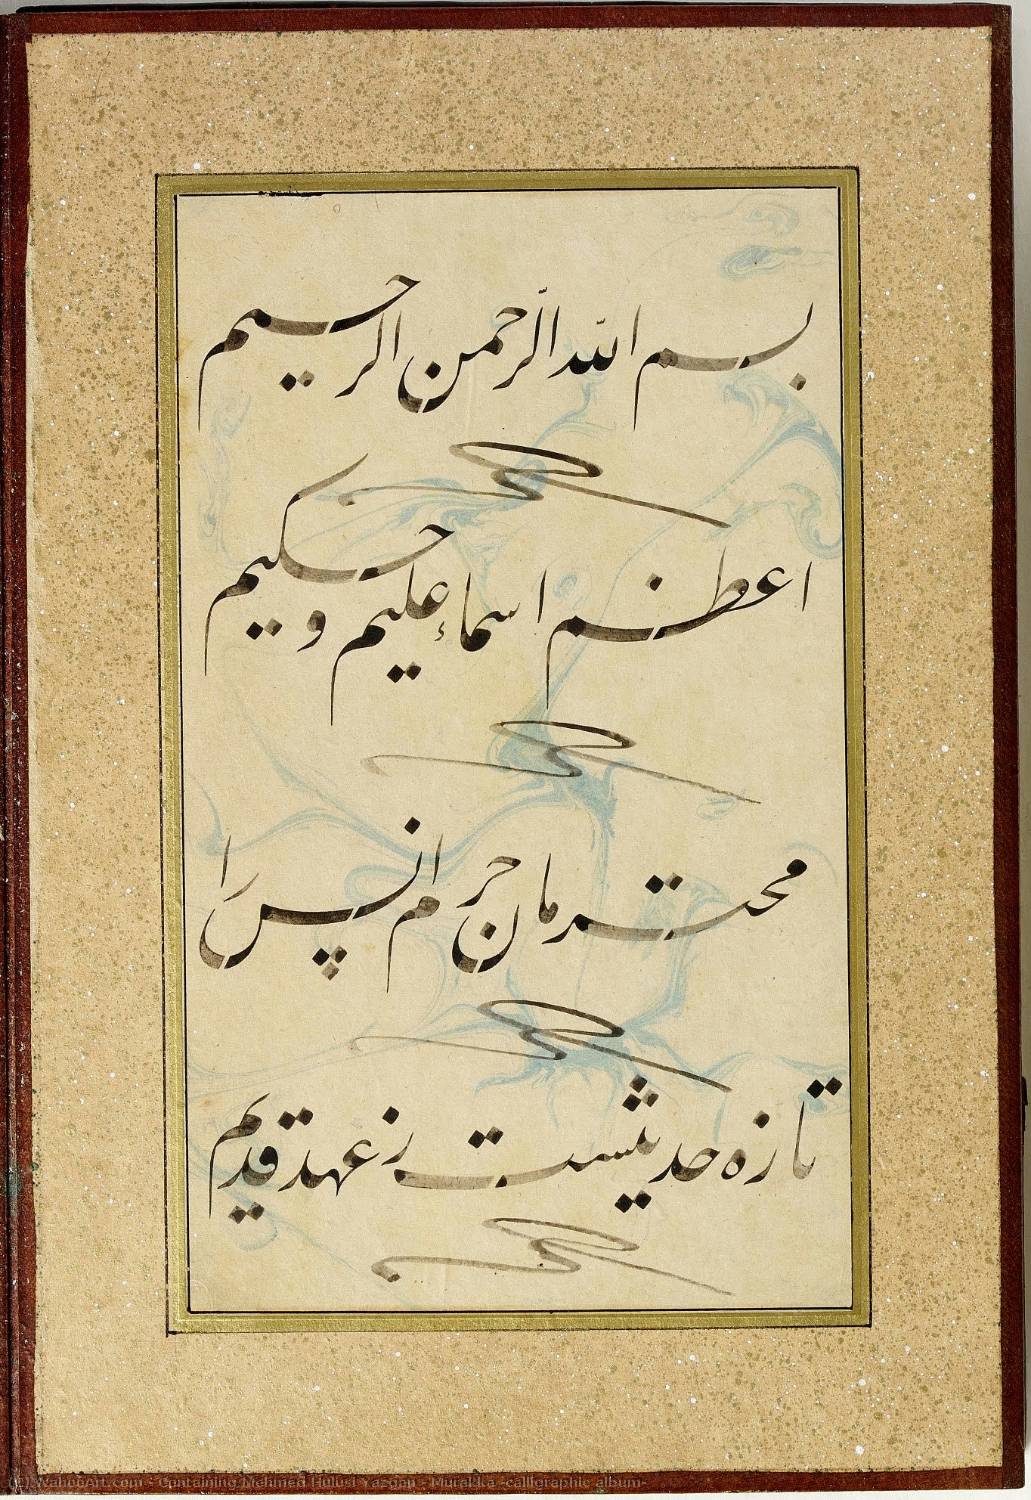 بسم الله الرحمن الرحیم
اعظم اسماء علیم و حکیم
محترمان حرم انس را
تازه حدیثیست ز عهد قدیم
WahooArt.com - Containing Mehmed Hulusi Yazgan - Murakka -calligraphic album-